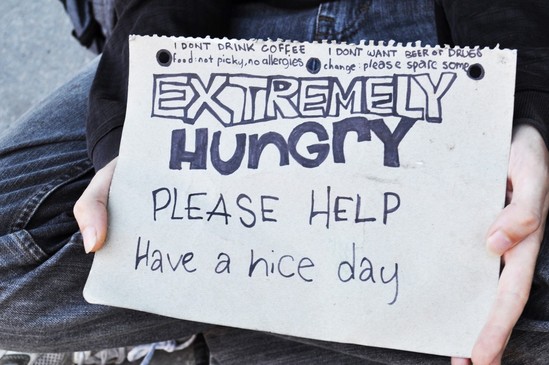 I DONT DRINK COFFEE
food: not picky, no allergies
I DONT WANT BEER OR DRUGS
change: please sparc some
EXTREMELY
HUNGRY
PLEASE HELP
Have a nice day